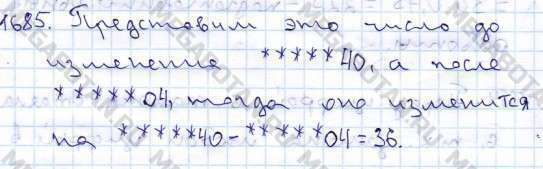 1685. Представим это число до
изменения *****40, а после
*****04, тогда оно изменится
на *****40-*****04=36.
MEGABOTAN.RU